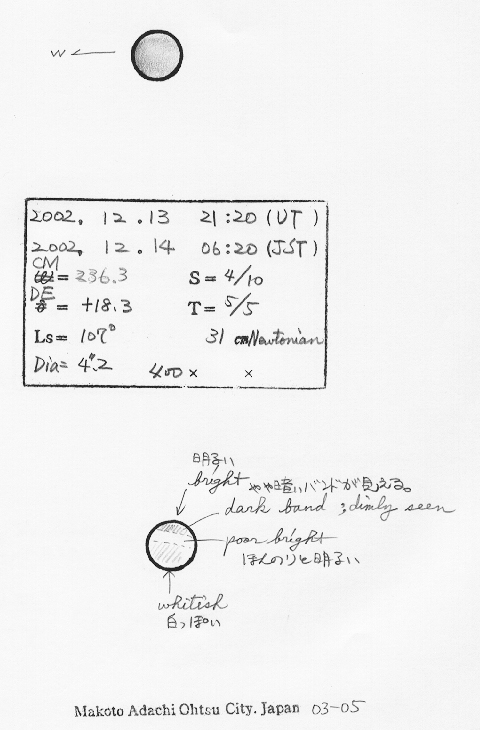 W
2002. 12.13 21:20 (UT)
2002. 12.14 06:20 (JST)
CM = 236.3 S = 4/10
DE = +18.3 T = 5/5
Ls = 107° 31 cm/Newtonian
Dia = 4".2 400× ×
明るい
bright やや暗いバンドが見える。
dark band ; dimly seen
poor bright
ほんのりと明るい
whitish
白っぽい
Makoto Adachi Ohtsu City. Japan 03-05